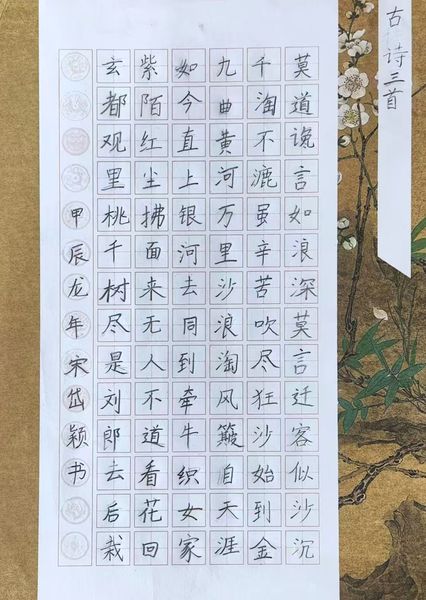 古诗三首
莫道谗言如浪深莫言迁客似沙沉
千淘不漉虽辛苦吹尽狂沙始到金
九曲黄河万里沙浪淘风簸自天涯
如今直上银河去同到牵牛织女家
紫陌红尘拂面来无人不道看花回
玄都观里桃千树尽是刘郎去后栽
甲辰龙年宋岱颖书